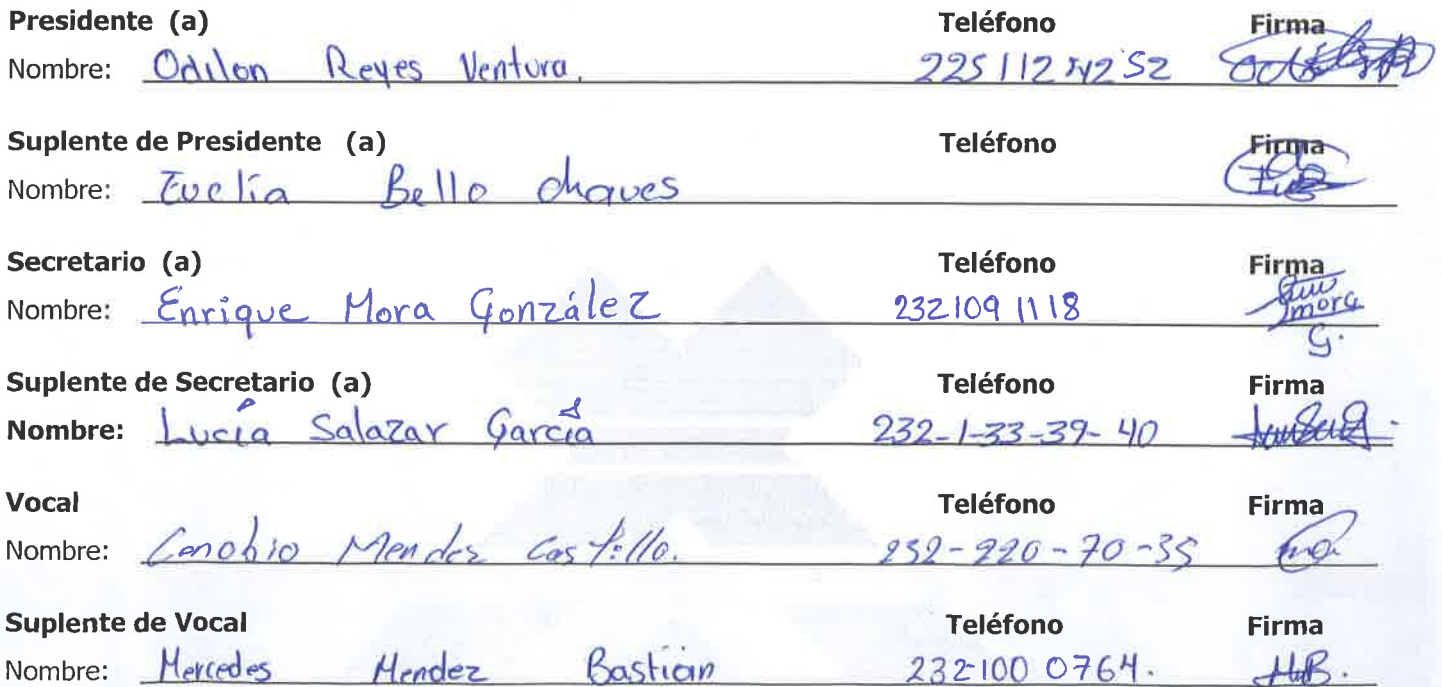 Presidente (a) Teléfono Firma
Nombre: Odilon Reyes Ventura.
Suplente de Presidente (a) Teléfono Firma
Nombre: Euelía Bello chaves
Secretario (a) Teléfono Firma
Nombre: Enrique Mora González 232109 1118 mora G.
Suplente de Secretario (a) Teléfono Firma
Nombre: Lucía Salazar García 232-1-33-39-40
Vocal Teléfono Firma
Nombre: Cenobio Mendez Castillo. 232-220-70-35
Suplente de Vocal Teléfono Firma
Nombre: Mercedes Mendez Bastian 232-100 0764. M.B.